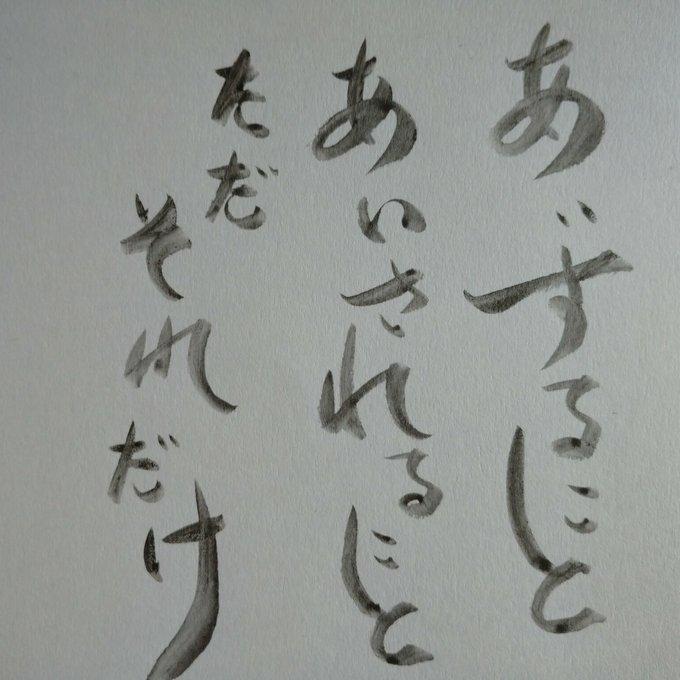 あいするしごと
あいされるしごと
ただ
それだけ